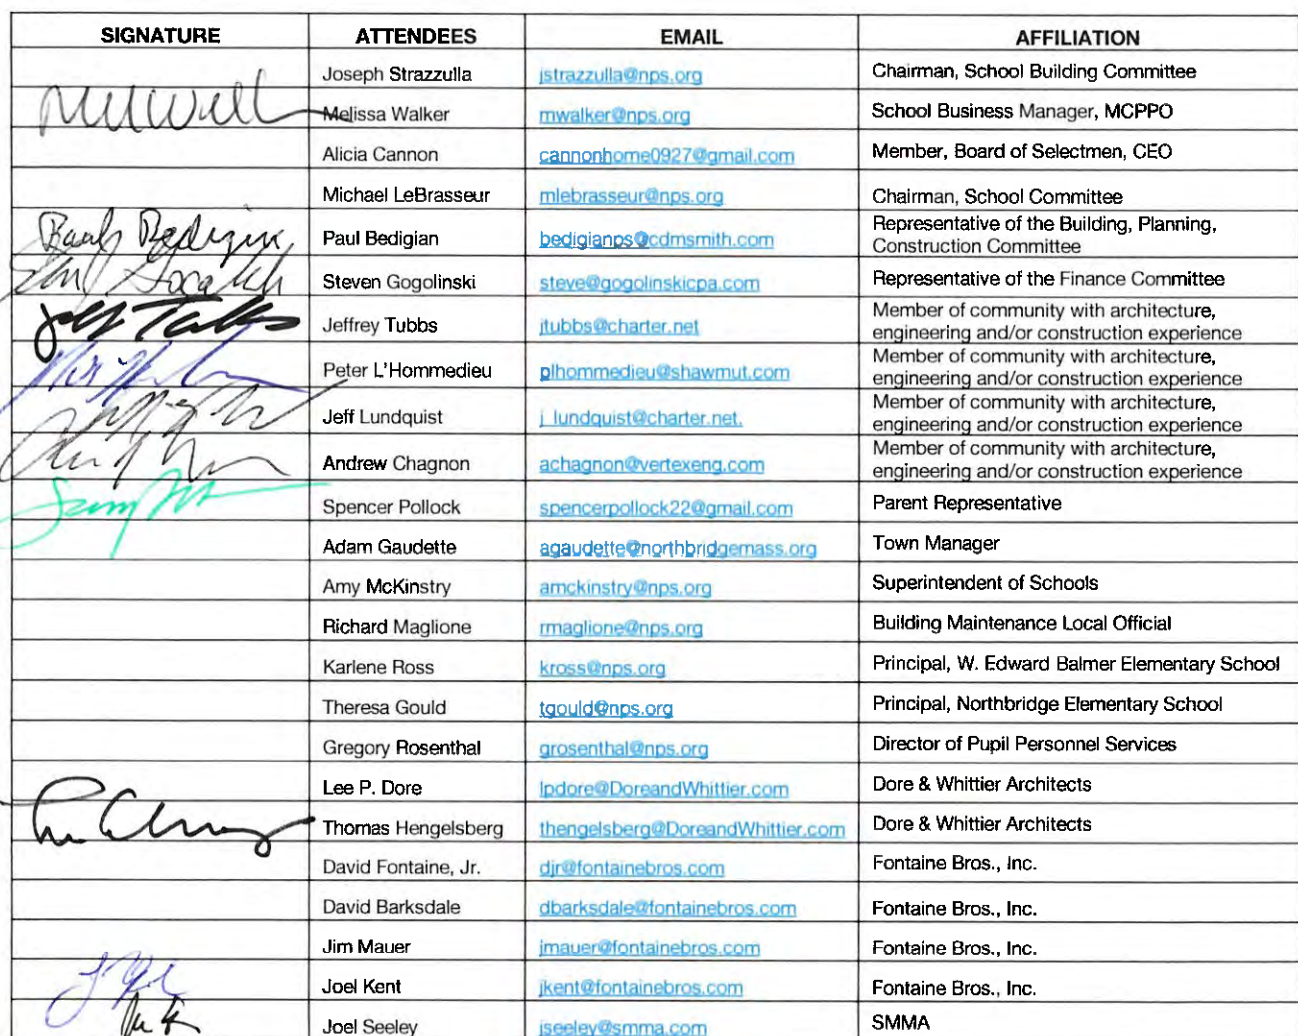 SIGNATURE ATTENDEES EMAIL AFFILIATION
Joseph Strazzulla jstrazzulla@nps.org Chairman, School Building Committee
Melissa Walker mwalker@nps.org School Business Manager, MCPPO
Alicia Cannon cannonhome0927@gmail.com Member, Board of Selectmen, CEO
Michael LeBrasseur mlebrasseur@nps.org Chairman, School Committee
Paul Bedigian Paul Bedigian bedigianps@cdmsmith.com Representative of the Building, Planning,
Construction Committee
Steven Gogolinski steve@gogolinskicpa.com Representative of the Finance Committee
Jeff Tubbs Jeffrey Tubbs jtubbs@charter.net Member of community with architecture,
engineering and/or construction experience
Peter L'Hommedieu plhommedieu@shawmut.com Member of community with architecture,
engineering and/or construction experience
Jeff Lundquist j_lundquist@charter.net. Member of community with architecture,
engineering and/or construction experience
Andrew Chagnon achagnon@vertexeng.com Member of community with architecture,
engineering and/or construction experience
Spencer Pollock spencerpollock22@gmail.com Parent Representative
Adam Gaudette agaudette@northbridgemass.org Town Manager
Amy McKinstry amckinstry@nps.org Superintendent of Schools
Richard Maglione rmaglione@nps.org Building Maintenance Local Official
Karlene Ross kross@nps.org Principal, W. Edward Balmer Elementary School
Theresa Gould tgould@nps.org Principal, Northbridge Elementary School
Gregory Rosenthal grosenthal@nps.org Director of Pupil Personnel Services
Lee P. Dore lpdore@DoreandWhittier.com Dore & Whittier Architects
Thomas Hengelsberg thengelsberg@DoreandWhittier.com Dore & Whittier Architects
David Fontaine, Jr. djr@fontainebros.com Fontaine Bros., Inc.
David Barksdale dbarksdale@fontainebros.com Fontaine Bros., Inc.
Jim Mauer jmauer@fontainebros.com Fontaine Bros., Inc.
Joel Kent jkent@fontainebros.com Fontaine Bros., Inc.
Joel Seeley jseeley@smma.com SMMA